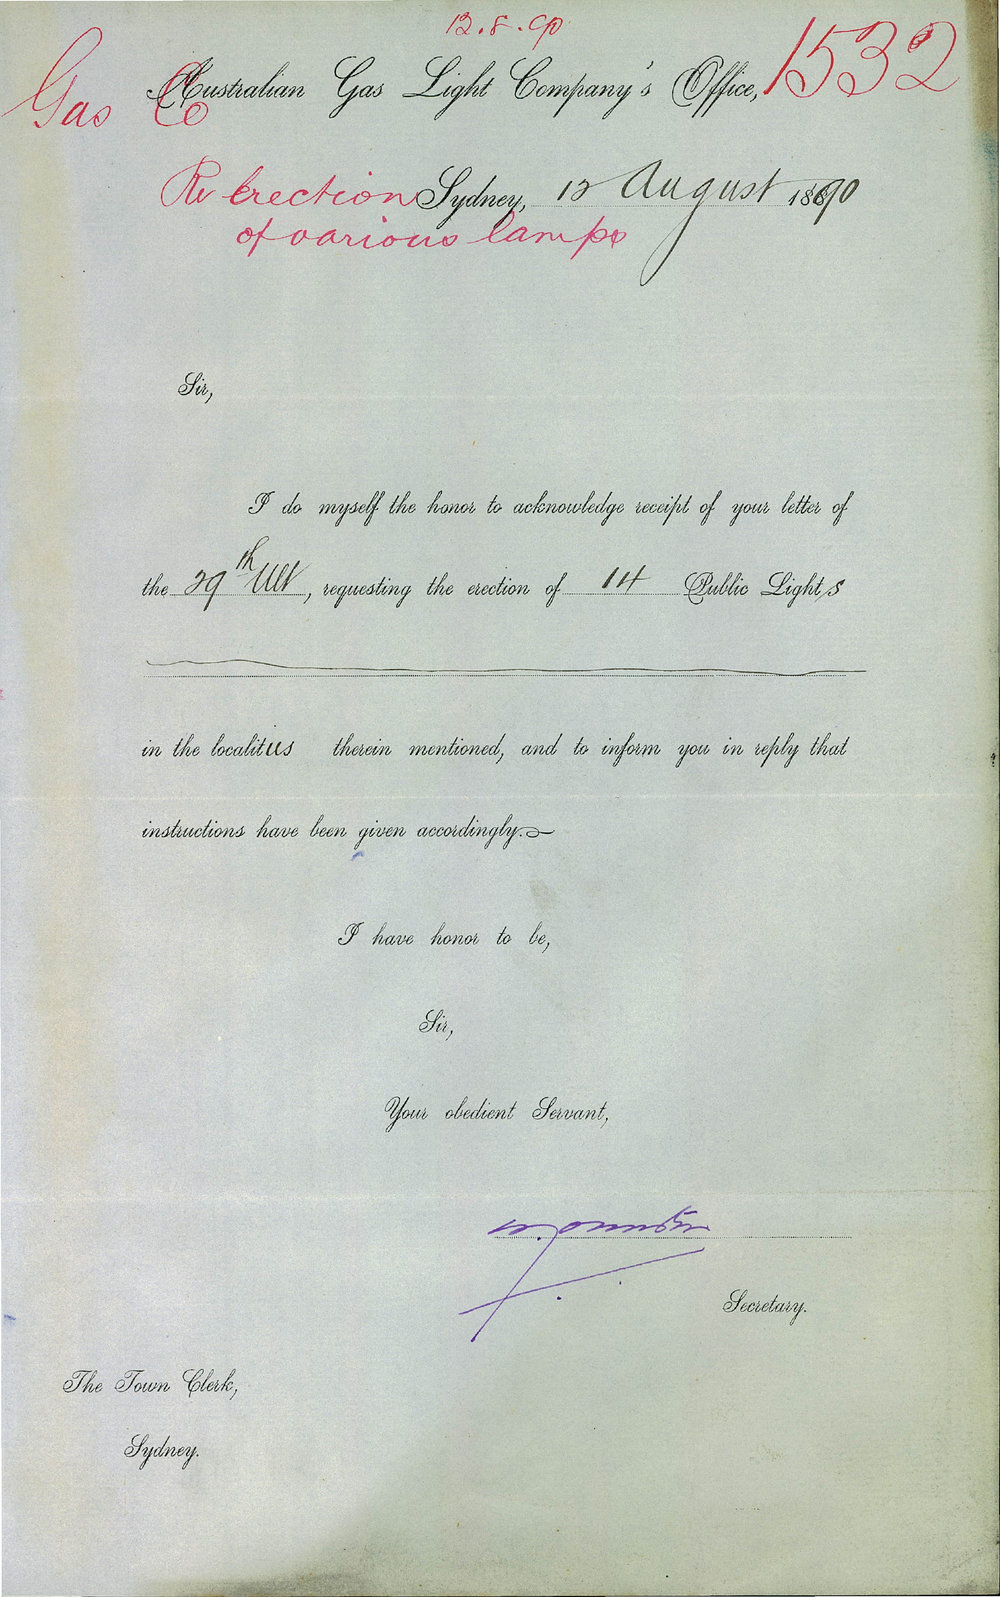 12.8.90
Gas Co
1532
Australian Gas Light Company's Office,
Re erection
Sydney, 12 August 1890
of various lamps
Sir,
I do myself the honor to acknowledge receipt of your letter of
the 29th Ult, requesting the erection of 14 Public Lights
in the localities therein mentioned, and to inform you in reply that
instructions have been given accordingly.
I have honor to be,
Sir,
Your obedient Servant,
Secretary.
The Town Clerk,
Sydney.